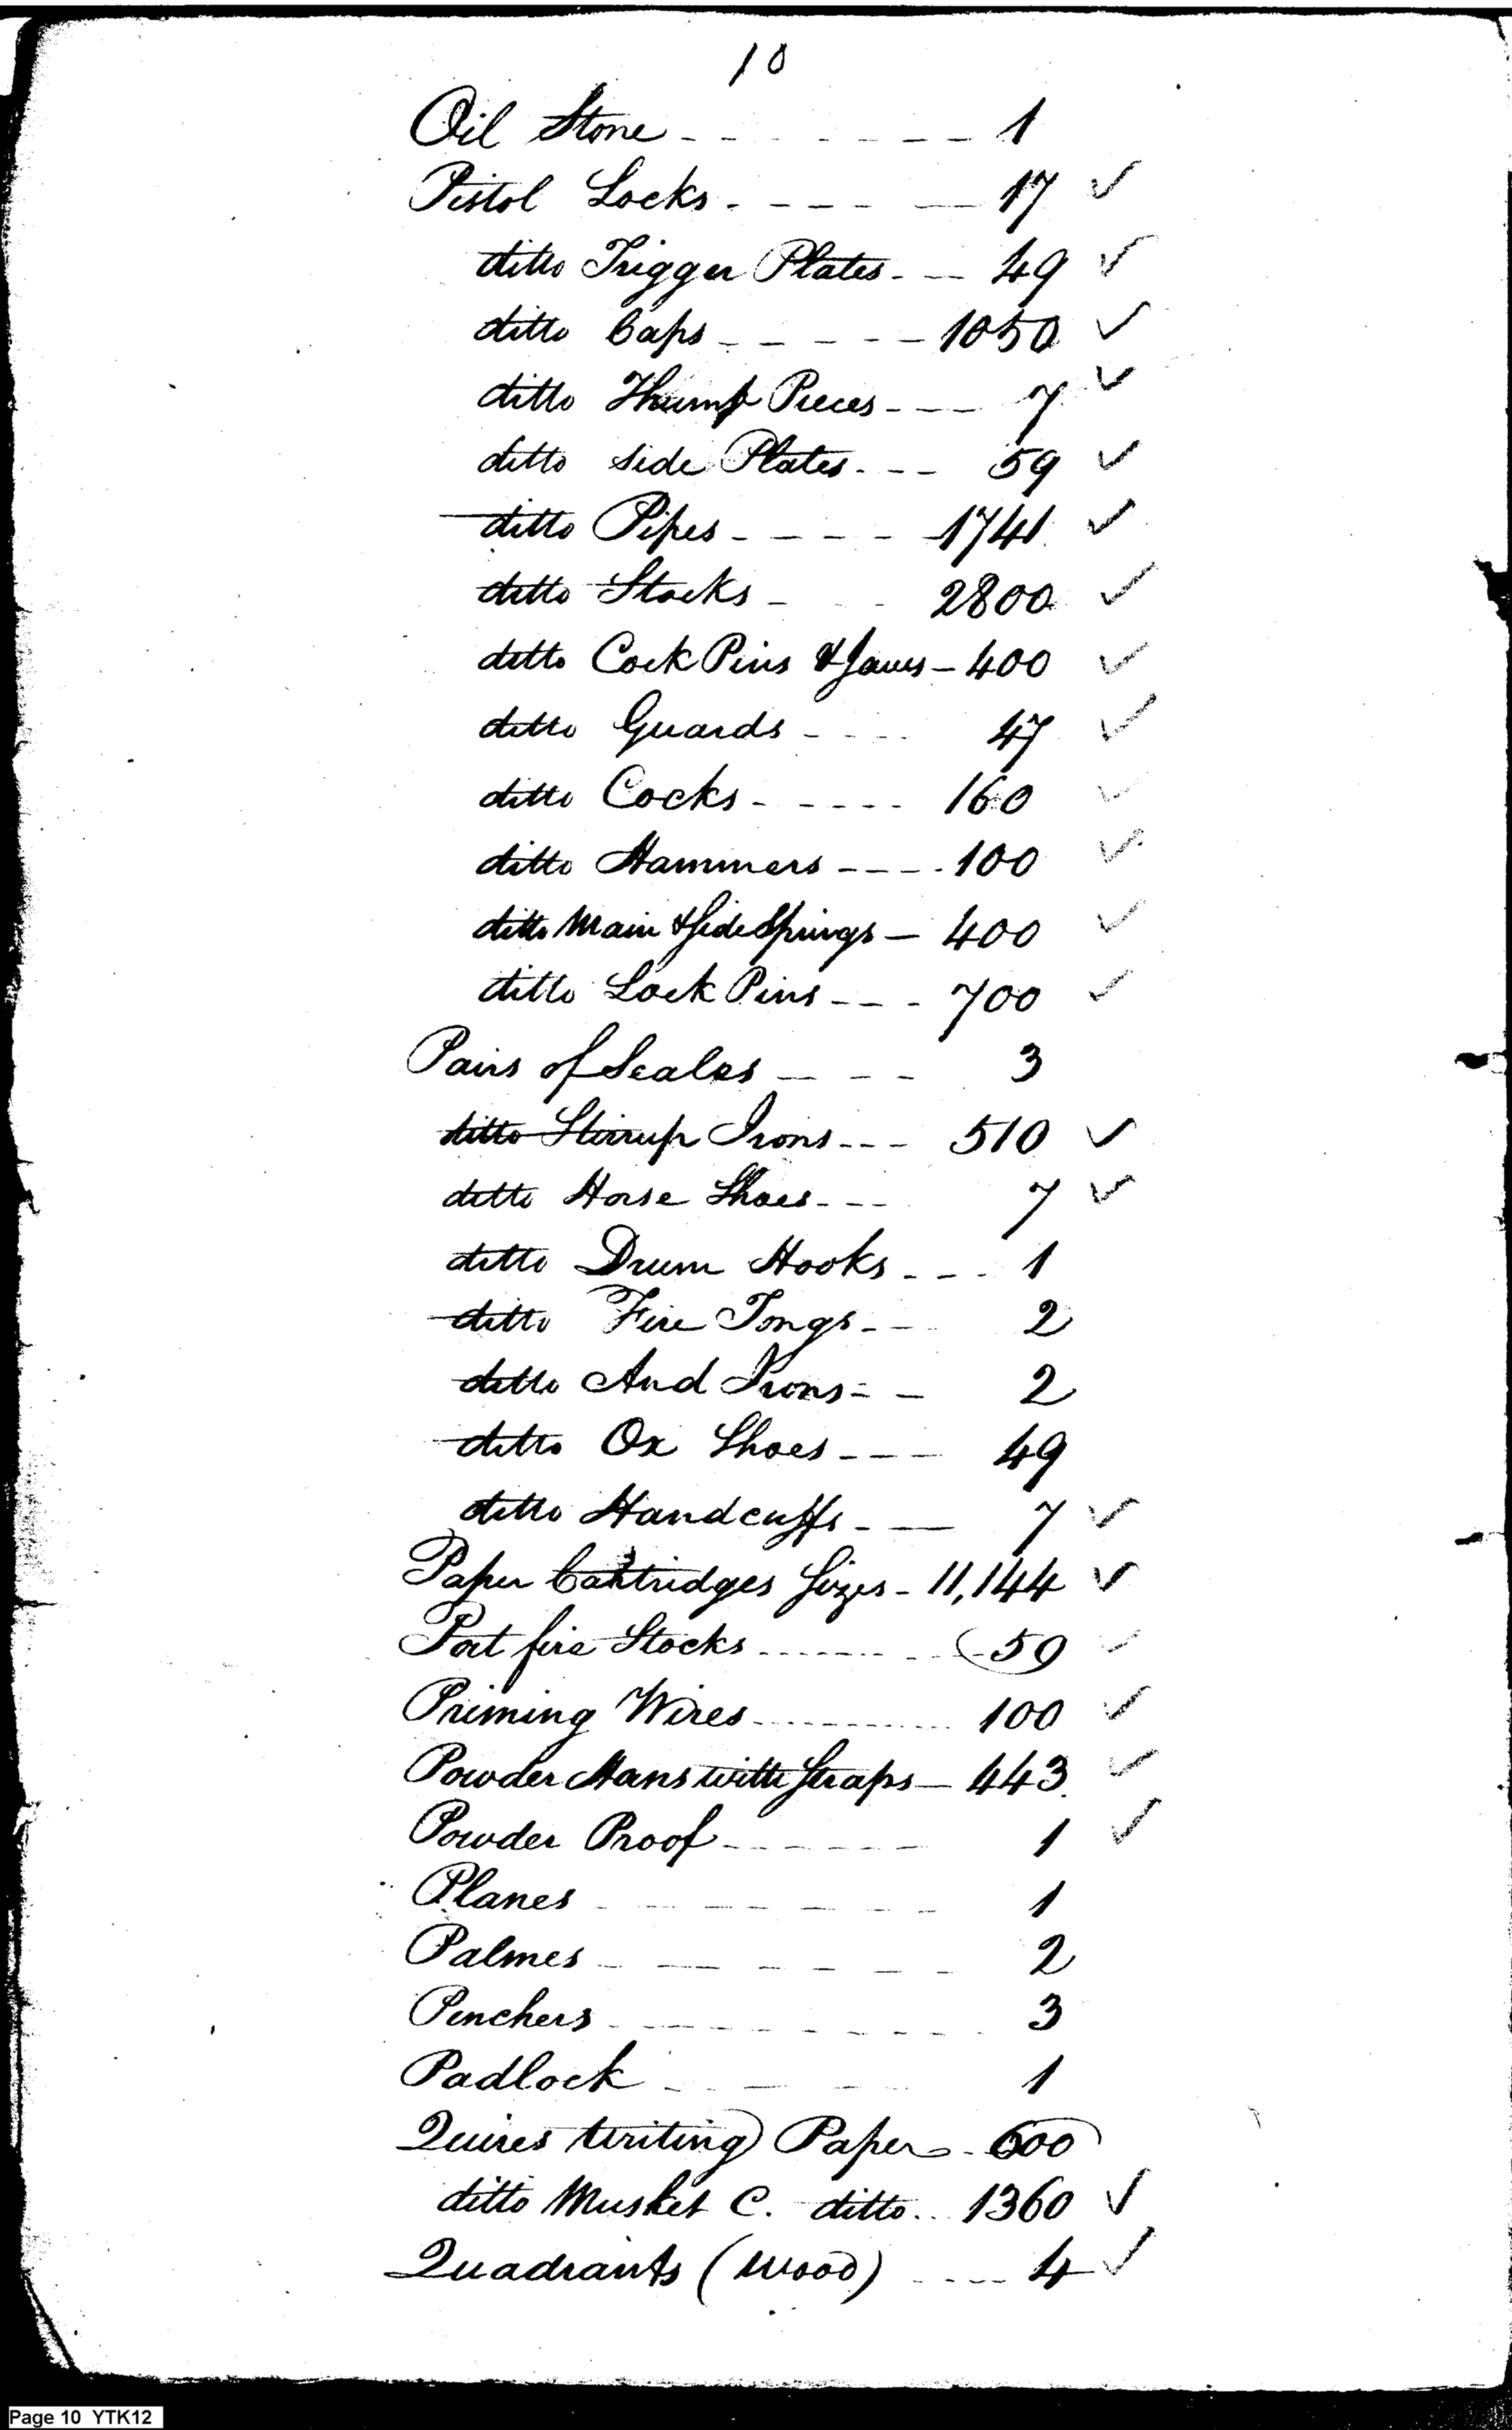 10
Oil Stone - - - - - - - 1
Pistol Locks - - - - - 17 ✓
ditto Trigger Plates - - 49 ✓
ditto Caps - - - - - 1050 ✓
ditto Thump Pieces - - - 7 ✓
ditto side Plates - - - 59 ✓
ditto Pipes - - - - - 1741 ✓
ditto Stocks - - - 2800 ✓
ditto Cock Pins & Jaws - 400 ✓
ditto Guards - - - - 47 ✓
ditto Cocks - - - - - 160 ✓
ditto Hammers - - - - 100 ✓
ditto Main & Side Springs - 400 ✓
ditto Lock Pins - - - 700 ✓
Pairs of Scales - - - 3
ditto Stirrup Irons - - - 510 ✓
ditto Horse Shoes - - - 7 ✓
ditto Drum Hooks - - - 1
ditto Fire Tongs - - 2
ditto And Irons - - 2
ditto Ox Shoes - - - 49
ditto Handcuffs - - 7 ✓
Paper Cartridges Sizes - 11,144 ✓
Port fire Stocks - - - - 59 ✓
Priming Wires - - - - 100 ✓
Powder Hans with Straps - 443 ✓
Powder Proof - - - - - 1 ✓
Planes - - - - - - 1
Palmes - - - - - - 2
Pinchers - - - - - - 3
Padlock - - - - - 1
Quires Writing Paper - 600
ditto Musket C. ditto .. 1360 ✓
Quadrants (Wood) - - - - 4 ✓
Page 10 YTK12